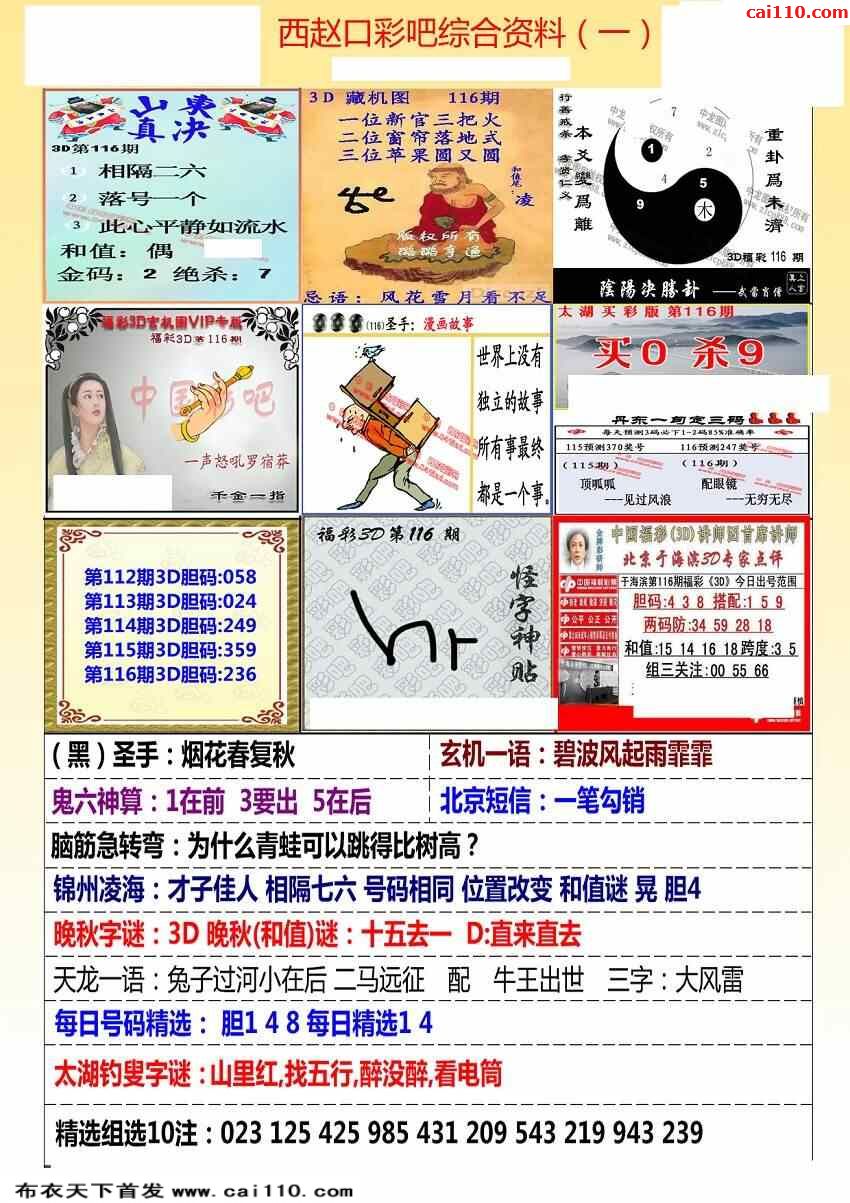 cai110.com
西赵口彩吧综合资料（一）
山东
真决
3D第116期
1 相隔二六
2 落号一个
3 此心平静如流水
和值：偶
金码：2 绝杀：7
3D 藏机图 116期
一位新官三把火
二位窗帘落地式
三位苹果圆又圆
和值尾：凌
版权所有
忌语：风花雪月看不足
本爻变为离
重卦为未济
7
1
2
4
5
9
木
3D福彩 116 期
阴阳决胜卦 ——武当肖僧
福彩3D玄机图VIP专版
福彩3D第116期
中国彩吧
一声怒吼罗宿莽
千金一指
(116)圣手：漫画故事
世界上没有
独立的故事
所有事最终
都是一个事。
太湖买彩版 第116期
买0 杀9
丹东一句定三码
每天预测3码必下1-2码85%准确率
115预测370奖号 116预测247奖号
（115期） （116期）
顶呱呱 配眼镜
——见过风浪 ——无穷无尽
第112期3D胆码:058
第113期3D胆码:024
第114期3D胆码:249
第115期3D胆码:359
第116期3D胆码:236
福彩3D第116 期
怪字神贴
中国福彩(3D)讲师团首席讲师
北京于海滨3D专家点评
中国福利彩票
于海滨第116期福彩《3D》今日出号范围
公平 公正 公开
胆码:4 3 8 搭配:1 5 9
两码防:34 59 28 18
和值:15 14 16 18 跨度:3 5
组三关注:00 55 66
（黑）圣手：烟花春复秋
玄机一语：碧波风起雨霏霏
鬼六神算：1在前 3要出 5在后
北京短信：一笔勾销
脑筋急转弯：为什么青蛙可以跳得比树高？
锦州凌海：才子佳人 相隔七六 号码相同 位置改变 和值谜 晃 胆4
晚秋字谜：3D 晚秋(和值)谜：十五去一 D:直来直去
天龙一语：兔子过河小在后 二马远征 配 牛王出世 三字：大风雷
每日号码精选： 胆1 4 8 每日精选1 4
太湖钓叟字谜：山里红,找五行,醉没醉,看电筒
精选组选10注：023 125 425 985 431 209 543 219 943 239
布衣天下首发 www.cai110.com